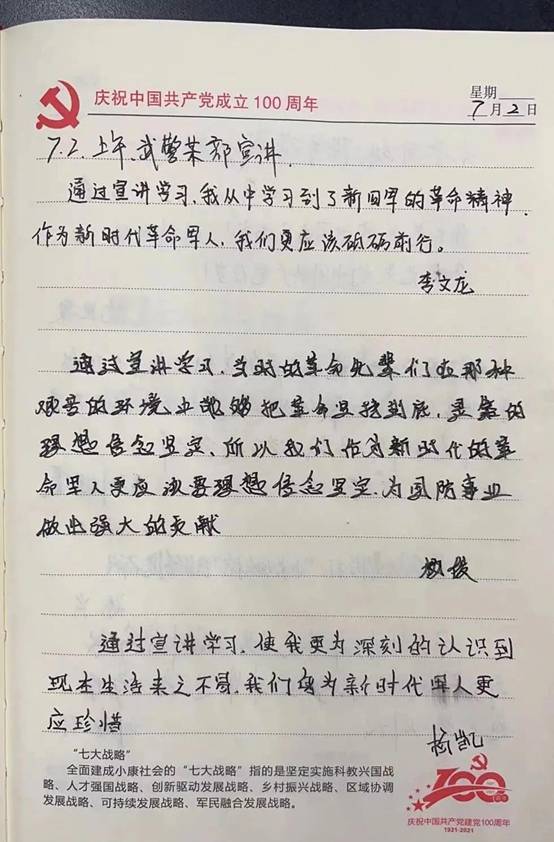 庆祝中国共产党成立100周年
星期
7月2日
7.2.上午.武警某部宣讲.
通过宣讲学习,我从中学习到了新四军的革命精神.
作为新时代革命军人,我们更应该砥砺前行。
李文龙
通过宣讲学习,当时的革命先辈们在那种
艰苦的环境上能够把革命坚持到底,靠的
理想信念坚定,所以我们作为新时代的革
命军人更应该要理想信念坚定.为国防事业
做出强大的贡献
通过宣讲学习,使我更为深刻的认识到
现在生活来之不易,我们身为新时代军人更
应珍惜
杨凯
“七大战略”
全面建成小康社会的“七大战略”指的是坚定实施科教兴国战
略、人才强国战略、创新驱动发展战略、乡村振兴战略、区域协调
发展战略、可持续发展战略、军民融合发展战略。
100
庆祝中国共产党建党100周年
1921-2021